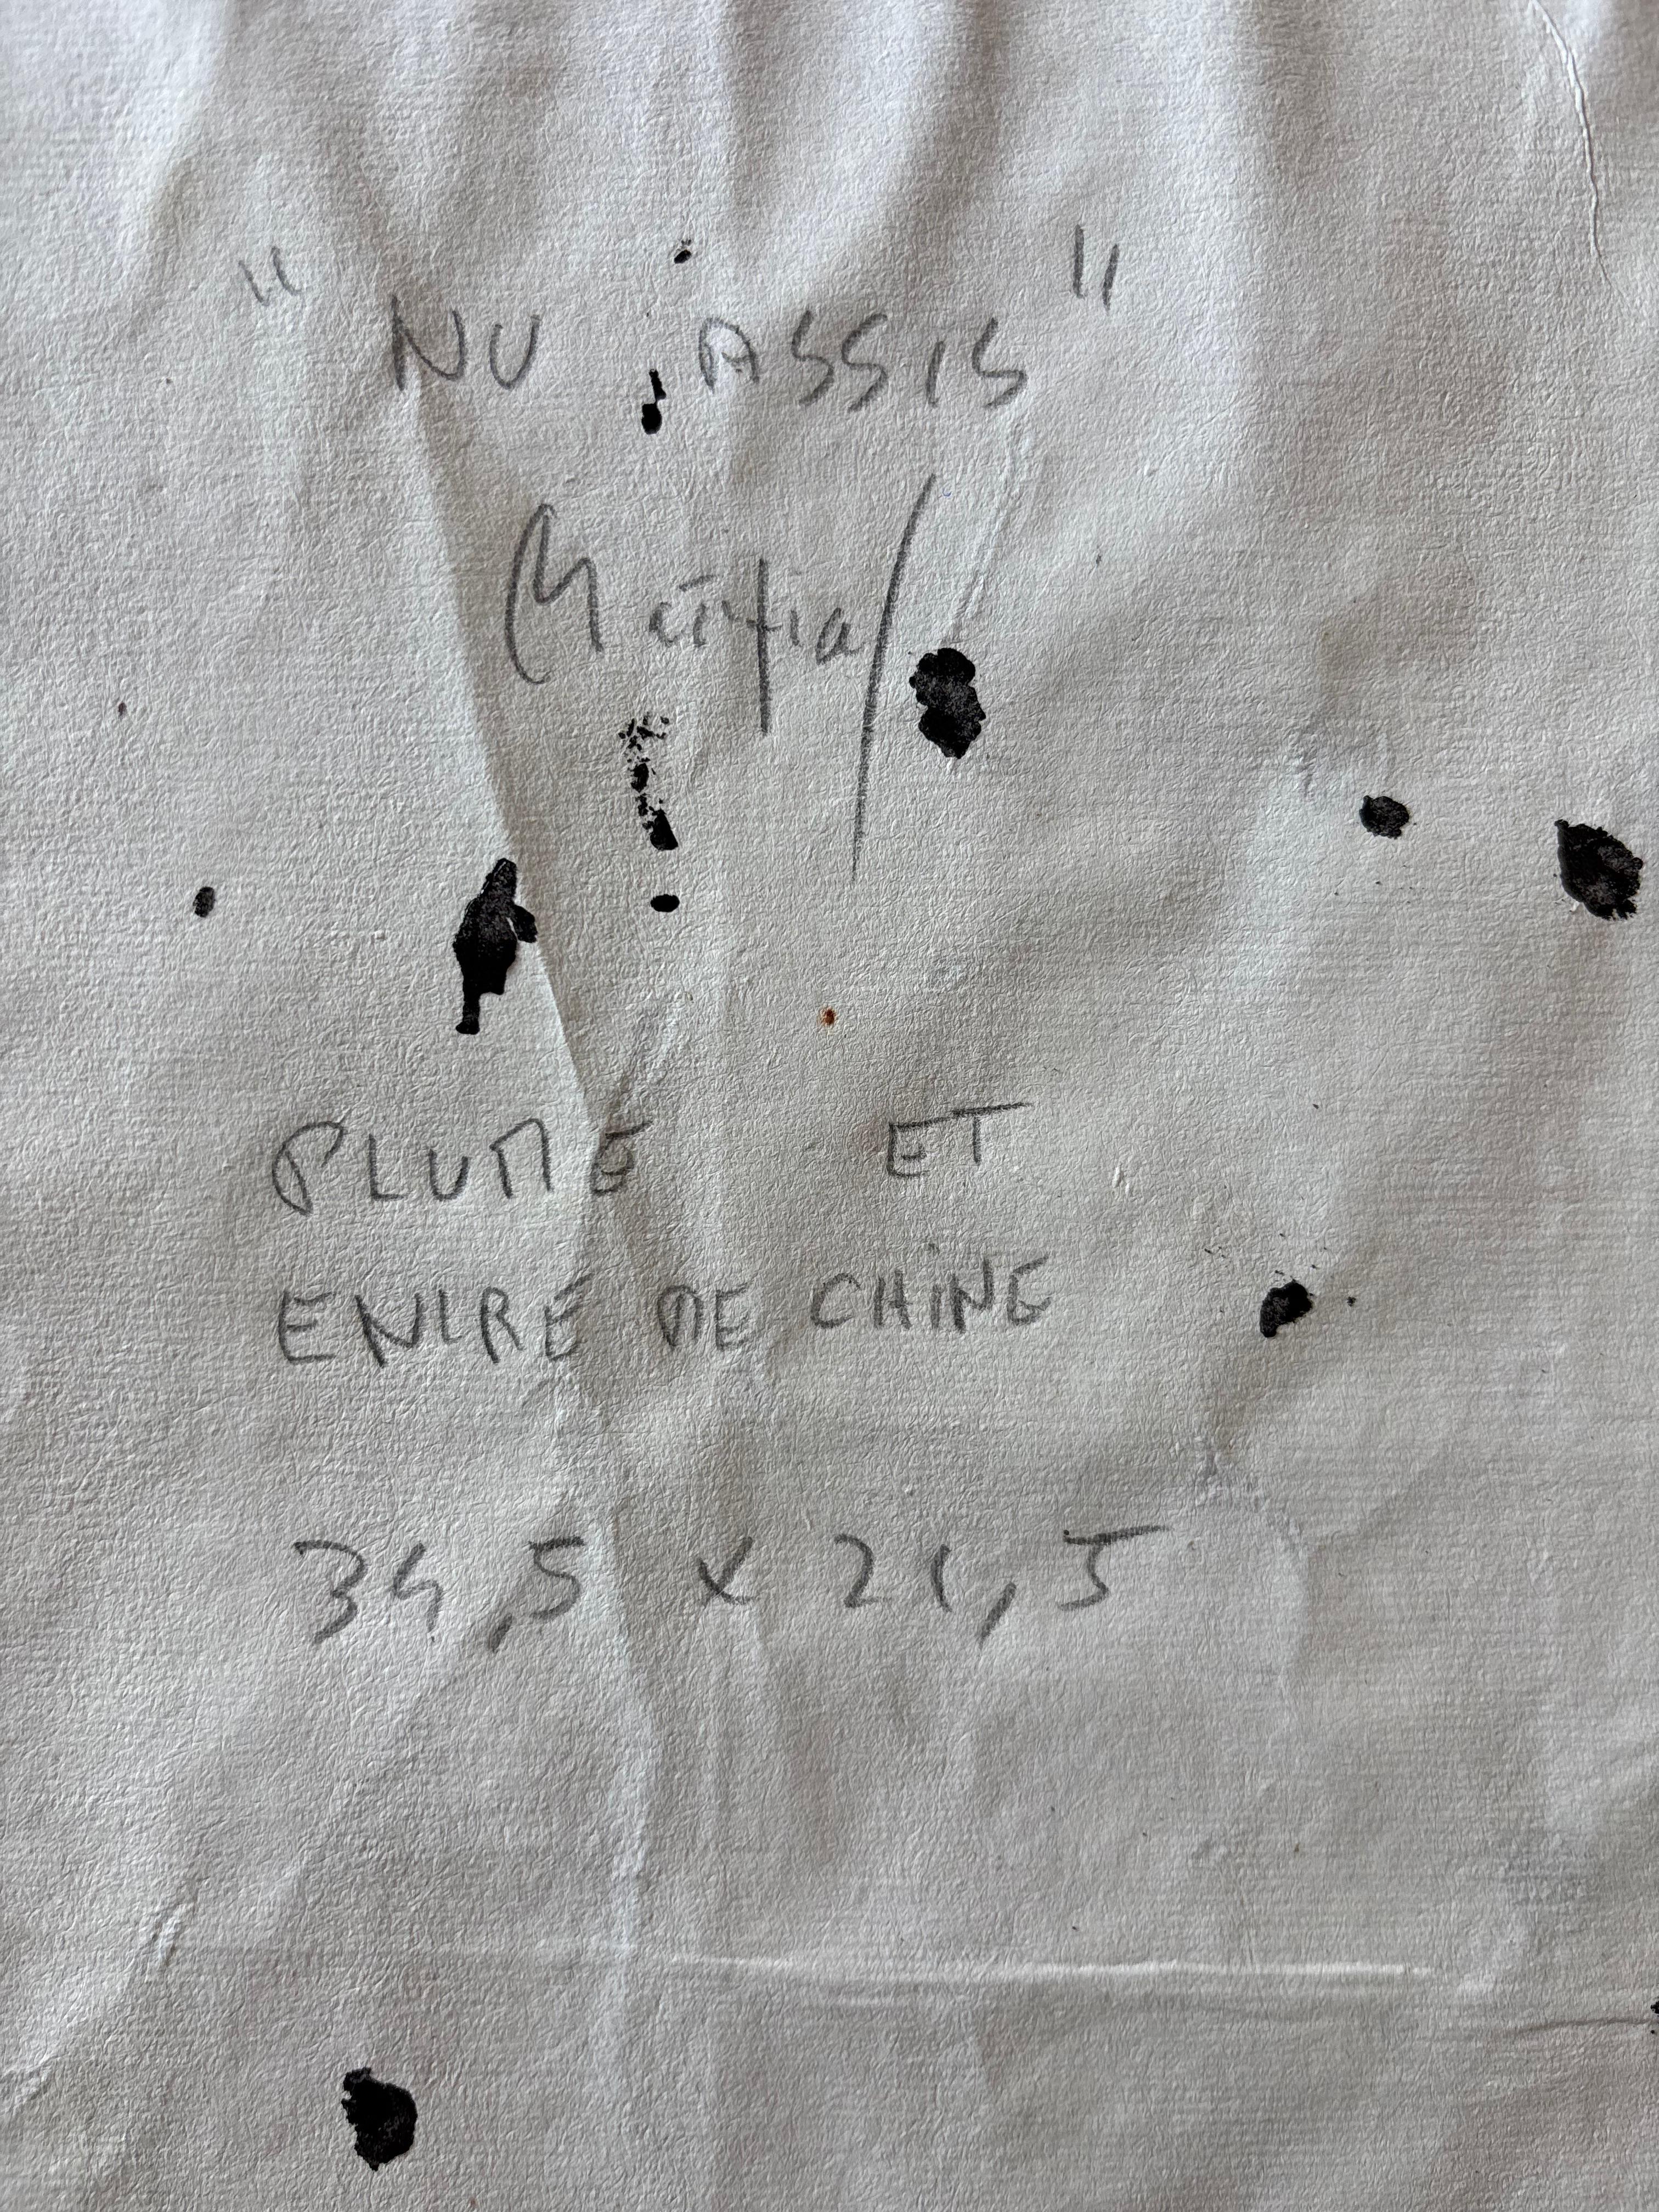 " NU ASSIS "
Martial
PLUME ET
ENCRE DE CHINE
34,5 x 21,5